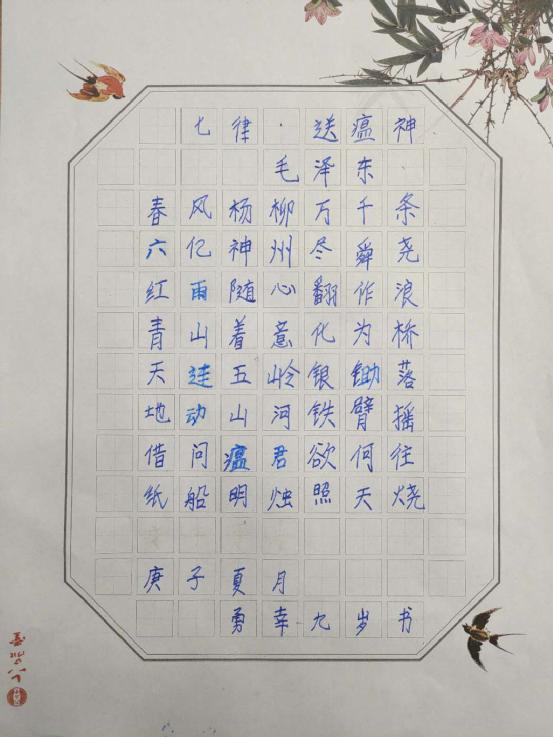 七律·送瘟神
毛泽东
春风杨柳万千条
六亿神州尽舜尧
红雨随心翻作浪
青山着意化为桥
天连五岭银锄落
地动山河铁臂摇
借问瘟君欲何往
纸船明烛照天烧
庚子夏月
勇幸九岁书